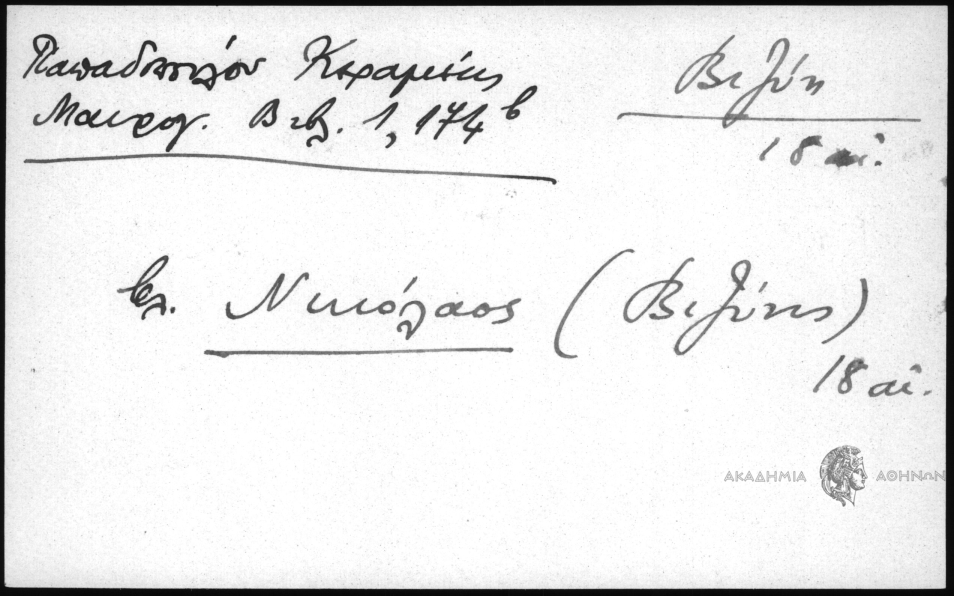 Παπαδοπούλου Κεραμεύς
Μαυρογ. Βιβλ. 1, 174β
Βιζύη
18 αἰ.
βλ. Νικόλαος (Βιζύης)
18 αἰ.
ΑΚΑΔΗΜΙΑ ΑΘΗΝΩΝ